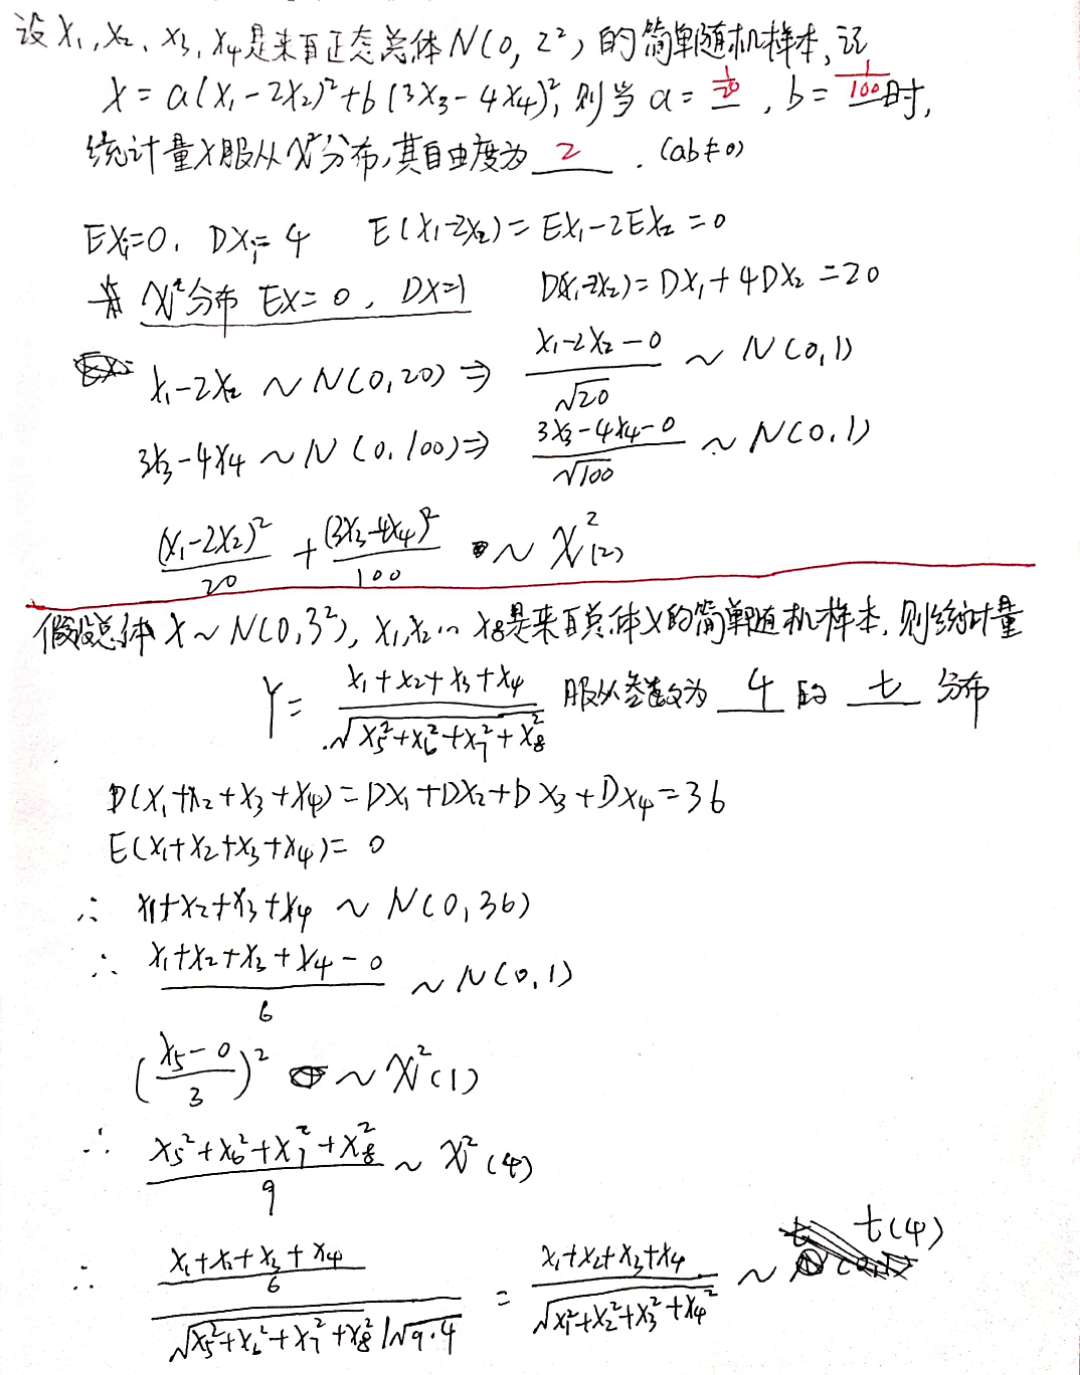 设X₁,X₂、X₃,X₄是来自正态总体N(0,2²)的简单随机样本,记
X=a(X₁-2X₂)²+b(3X₃-4X₄)²,则当a=1/20,b=1/100时,
统计量X服从χ²分布,其自由度为2.(ab≠0)
EXᵢ=0. DXᵢ=4 E(X₁-2X₂)=EX₁-2EX₂=0
χ²分布 EX=0, DX=1 D(X₁-2X₂)=DX₁+4DX₂=20
X₁-2X₂~N(0,20)⇒(X₁-2X₂-0)/√20~N(0,1)
3X₃-4X₄~N(0.100)⇒(3X₃-4X₄-0)/√100~N(0.1)
(X₁-2X₂)²/20+(3X₃-4X₄)²/100~χ²(2)
假设总体X~N(0,3²),X₁,X₂…X₈是来自总体X的简单随机样本,则统计量
Y=(X₁+X₂+X₃+X₄)/√(X₅²+X₆²+X₇²+X₈²) 服从参数为4的t分布
D(X₁+X₂+X₃+X₄)=DX₁+DX₂+DX₃+DX₄=36
E(X₁+X₂+X₃+X₄)=0
∴ X₁+X₂+X₃+X₄~N(0,36)
∴ (X₁+X₂+X₃+X₄-0)/6~N(0,1)
((X₅-0)/3)²~χ²(1)
∴ (X₅²+X₆²+X₇²+X₈²)/9~χ²(4)
∴ ((X₁+X₂+X₃+X₄)/6)/(√(X₅²+X₆²+X₇²+X₈²)/√(9·4))=(X₁+X₂+X₃+X₄)/√(X₁²+X₂²+X₃²+X₄²)~t(4)